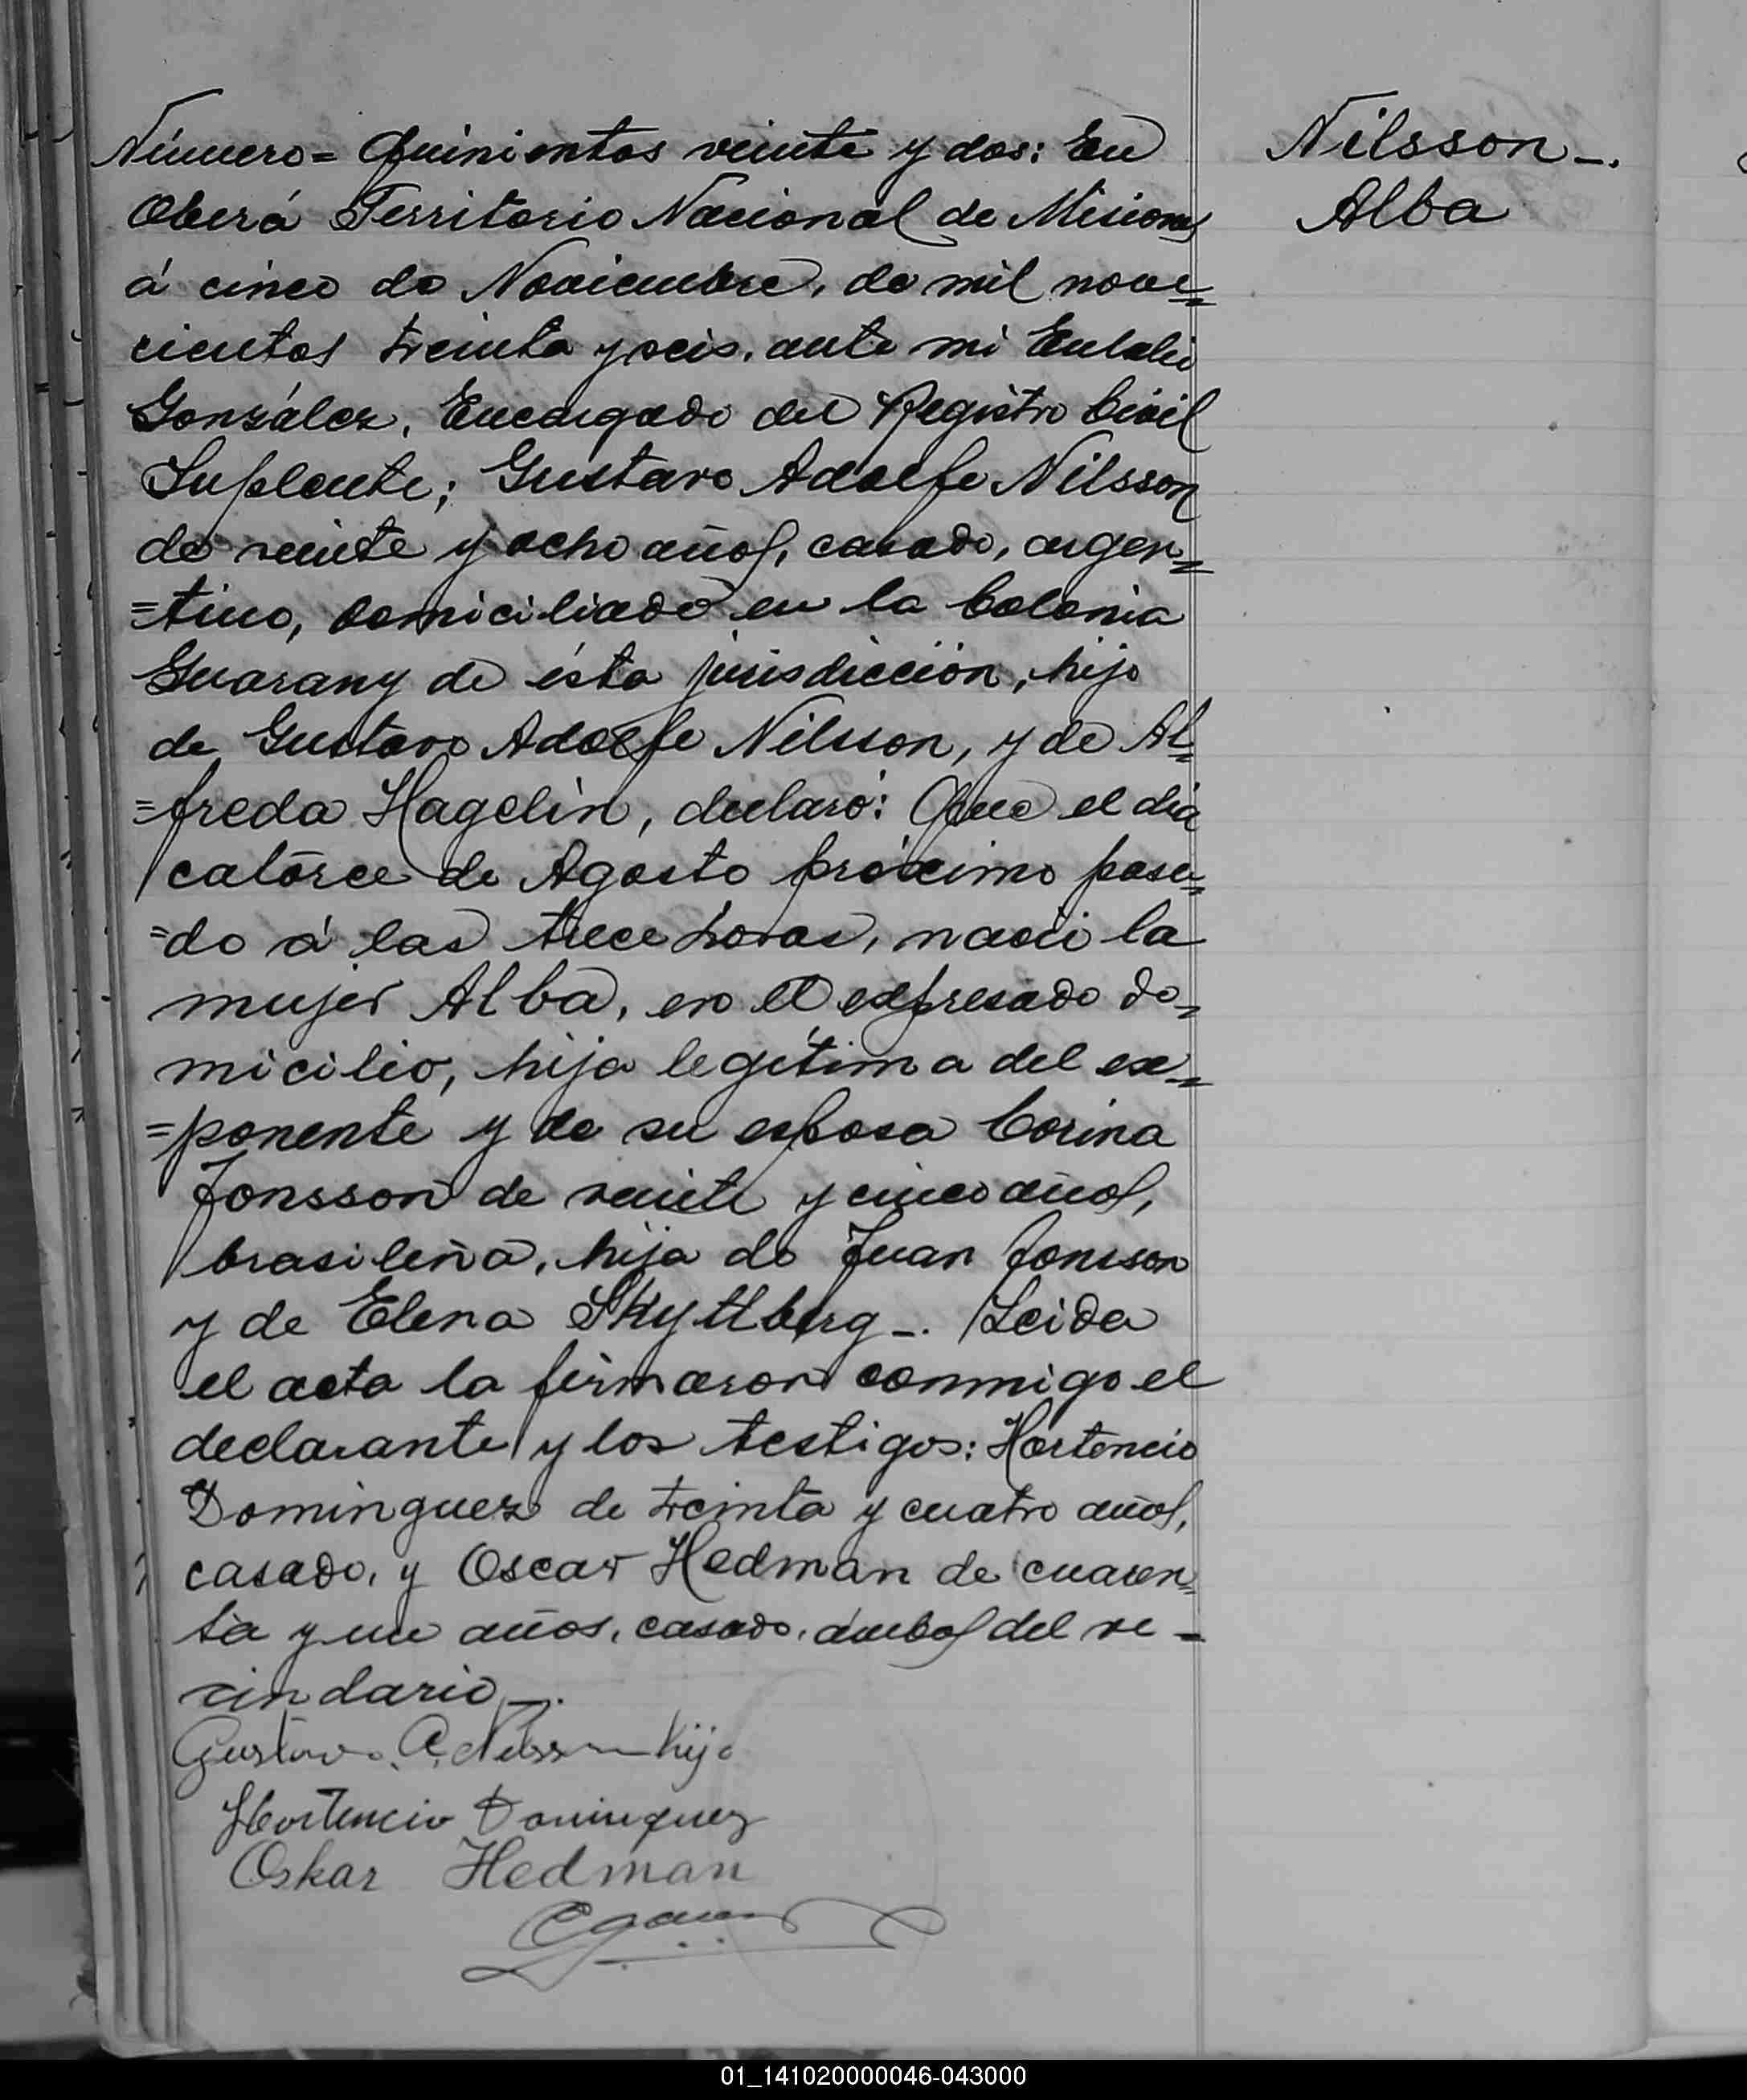 Número= Quinientos veinte y dos: En
Oberá Territorio Nacional de Misiones
á cinco de Noviembre, de mil nove=
cientos treinta y seis, ante mi Eulalio
González, Encargado del Registro Civil
Suplente; Gustavo Adolfo Nilsson
de veinte y ocho años, casado, argen=
=tino, domiciliado en la Colonia
Guarany de ésta jurisdicción, hijo
de Gustavo Adolfo Nilsson, y de Al=
=freda Hagelin, declaró: Que el dia
catorce de Agosto próximo pasa=
=do á las trece horas, nació la
mujer Alba, en el expresado do=
micilio, hija legítima del ex=
=ponente y de su esposa Corina
Jonsson de veinte y cinco años,
brasileña, hija de Juan Jonsson
y de Elena Skyttberg-. Leida
el acta la firmaron conmigo el
declarante y los testigos: Hortencio
Dominguez de treinta y cuatro años,
casado, y Oscar Hedman de cuaren=
ta y un años, casado, ámbos del ve-
cindario-.
Gustavo A. Nilsson hijo
Hortencio Dominguez
Oskar Hedman
Nilsson-.
Alba
01_141020000046-043000